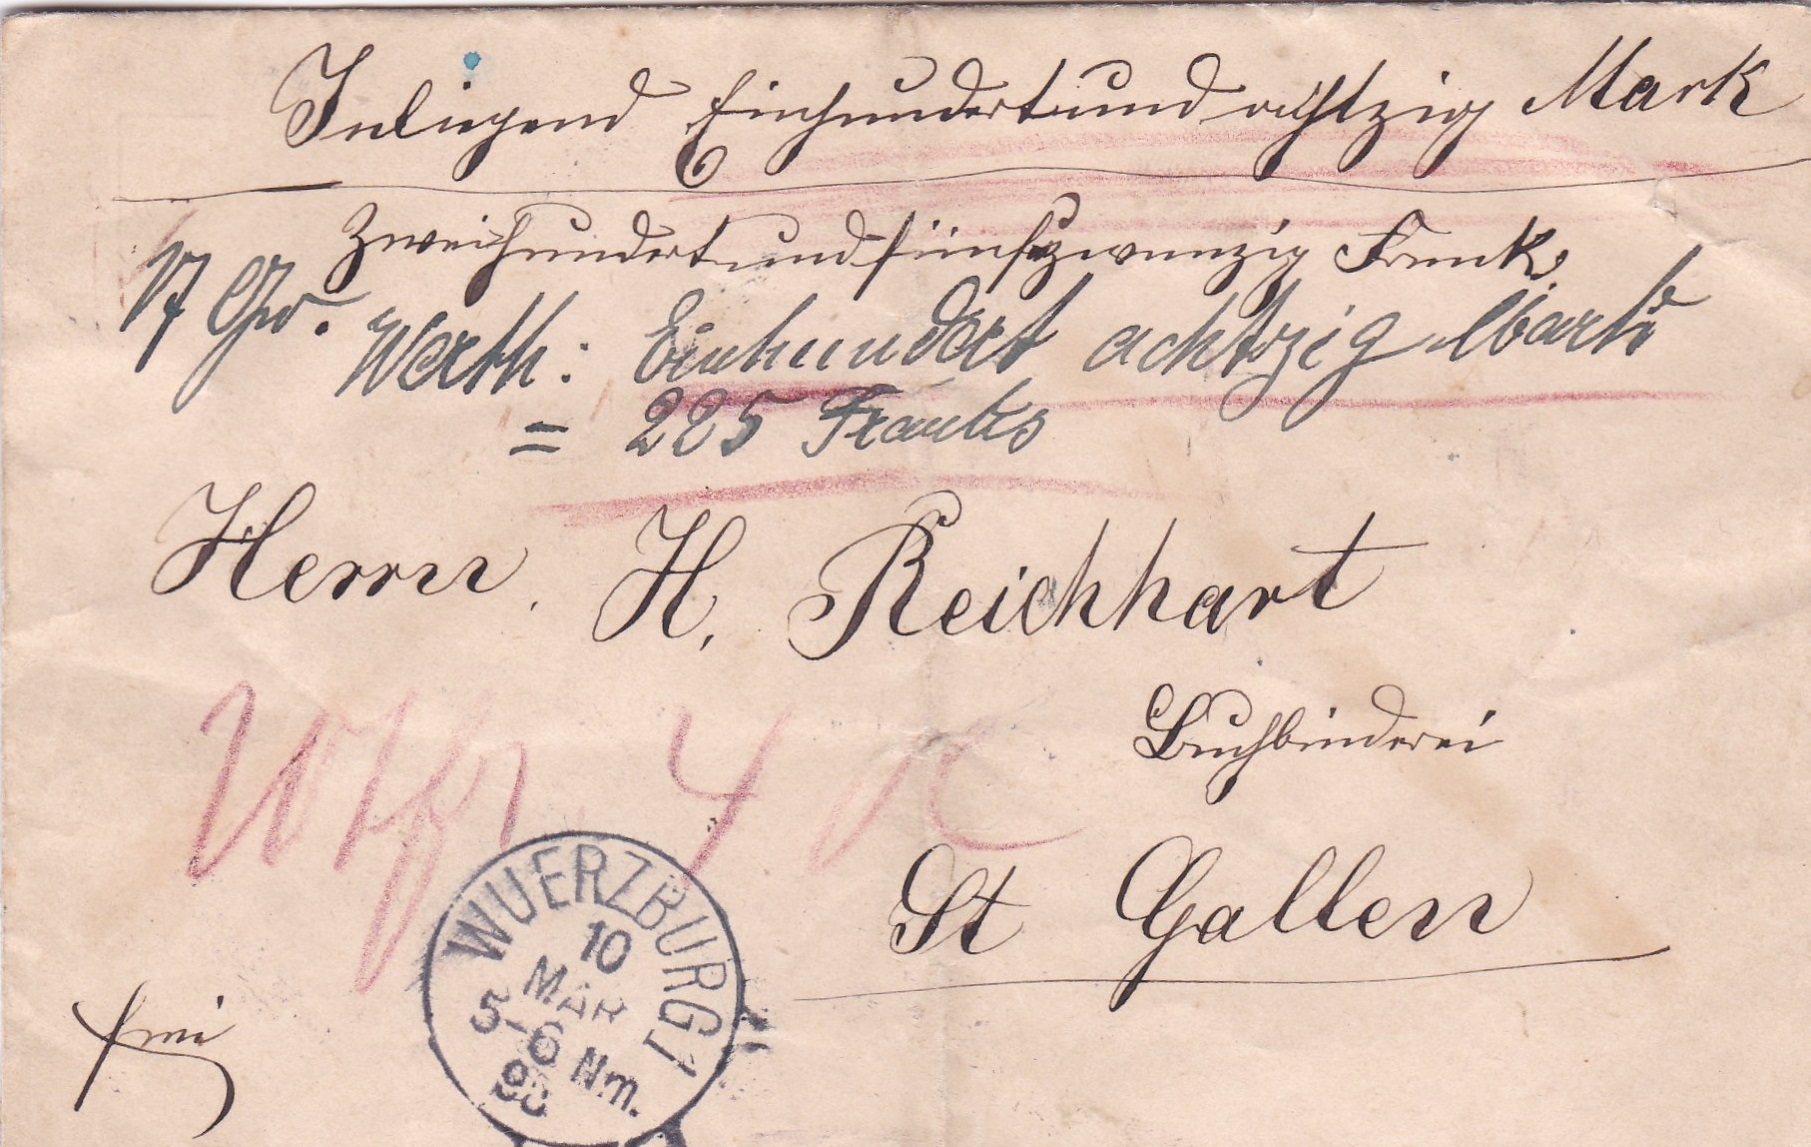 Inliegend Einhundertundachtzig Mark
Zweihundertundfünfzwanzig Frank
17 Gr. Werth: Einhundert achtzig Mark
= 225 Franks
Herrn H. Reichhart
Buchbinderei
St Gallen
frei
WUERZBURG 1
10
MAR
5-6 Nm.